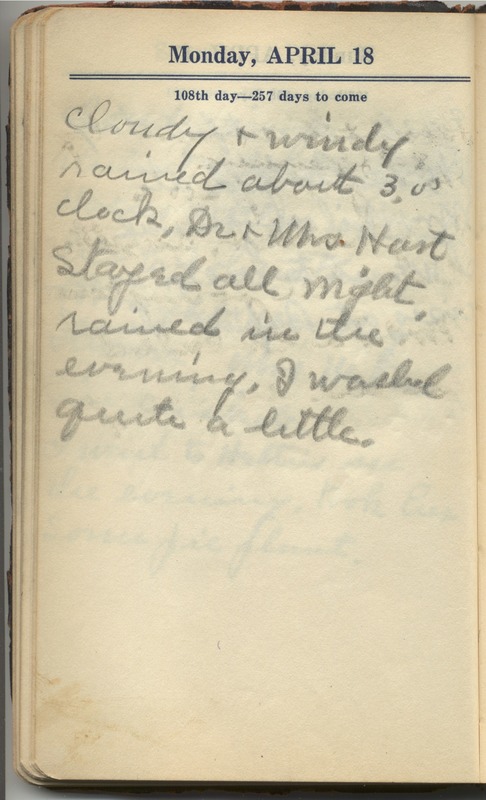 Monday, APRIL 18
108th day—257 days to come
cloudy + windy
rained about 3, o,
clock, Dr + Mrs. Hart
stayed all night
rained in the
evening, I washed
quite a little.
the evening.
some pie plant.